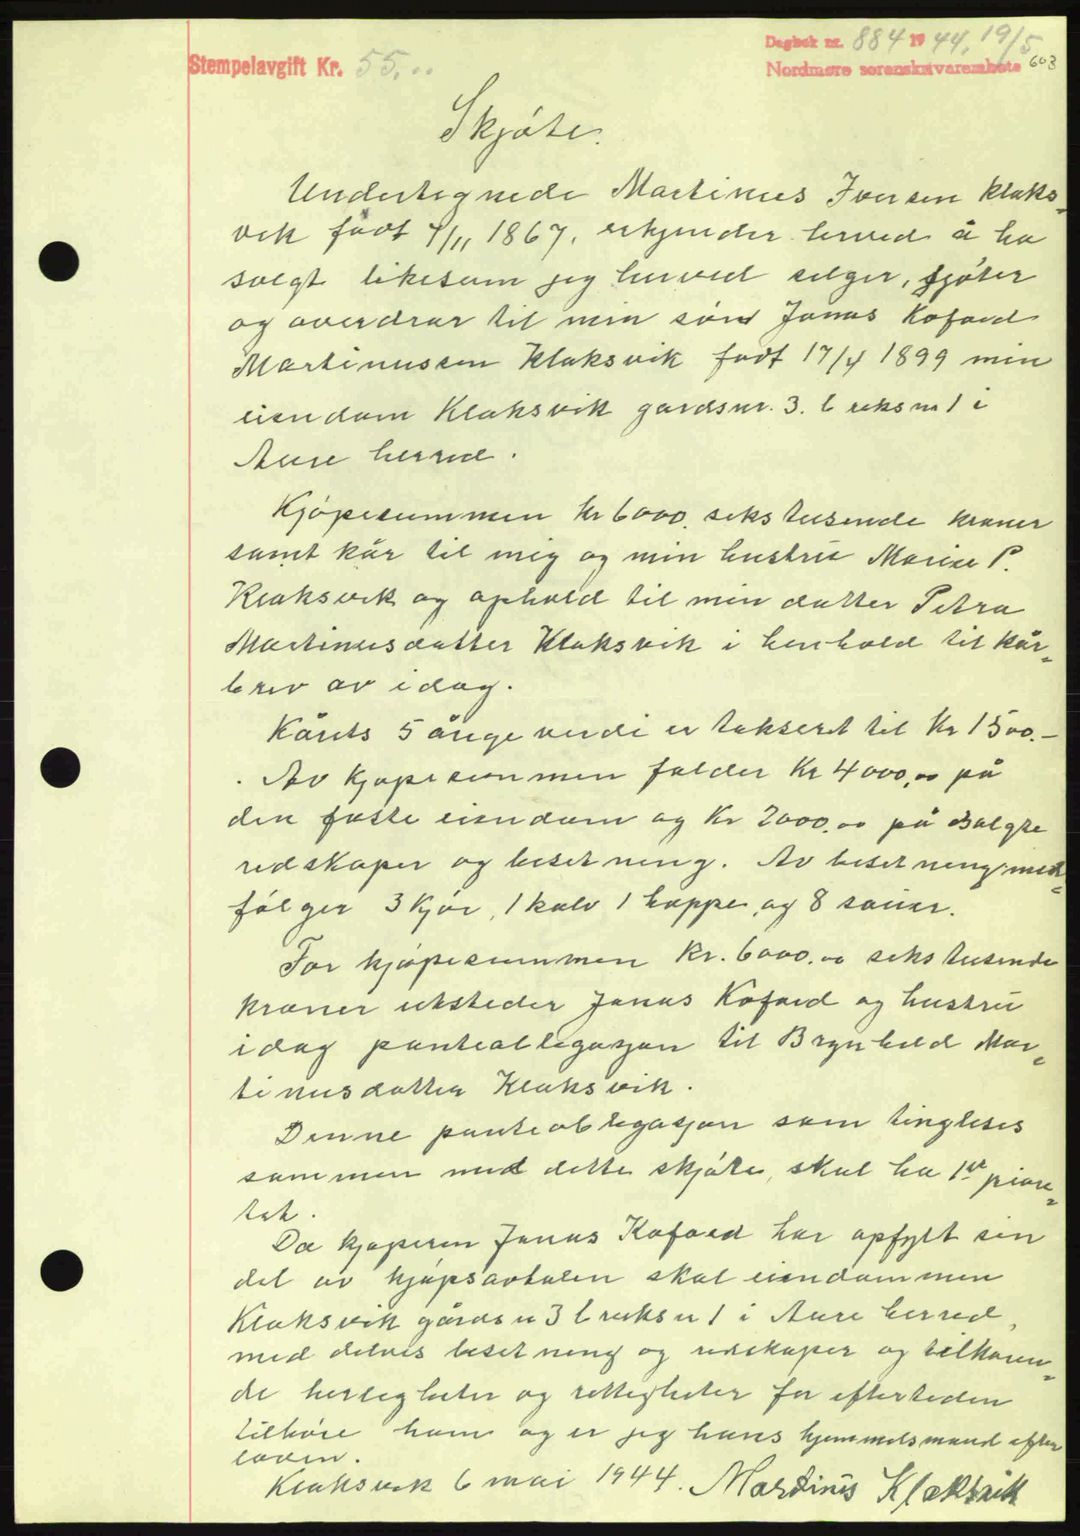 Stempelavgift Kr. 55,..
Dagbok nr. 884 1944. 19/5
Nordmøre sorenskriverembete 603
Skjøte.
Undertegnede Martinus Iversen Klaks-
vik født 4/11 1867, erkjender herved å ha
solgt likesom jeg herved selger, skjøter
og averdrar til min sønn Jonas Kofoed
Martinussen Klaksvik født 17/4 1899 min
eiendom Klaksvik gardsnr. 3. bruksnr 1 i
Aure herred.
Kjøpesummen kr 6000. seks tusende kroner
samt kår til mig og min hustru Marie P.
Klaksvik og ophold til min datter Petra
Martinusdatter Klaksvik i henhold til kår-
brev av idag.
Kårets 5 årige verdi er taksert til kr 1500.-
Av kjøpesummen falder kr 4000,00 på
den faste eiendom og kr 2000.00 på solgte
redskaper og besetning. Av besetning med-
følger 3 kjør, 1 kalv 1 hoppe og 8 sauer.
For kjøpesummen kr. 6000.00 seks tusende
kroner utsteder Jonas Kofoed og hustru
idag panteobligasjon til Brynhild Mar-
tinusdatter Klaksvik.
Denne panteobligasjon som tingleses
sammen med dette skjøte, skal ha 1st piore-
tet.
Da kjøperen Jonas Kofoed har opfylt sin
del av kjøpsavtalen skal eiendommen
Klaksvik gårdsn 3 bruksn 1 i Aure herred,
med delvis besetning og redskaper og tilhøren-
de herligheter og rettigheter for eftertiden
tilhøre ham og er jeg hans hjemmelsmand efter
loven.
Klaksvik 6 mai 1944. Martinus Klaksvik